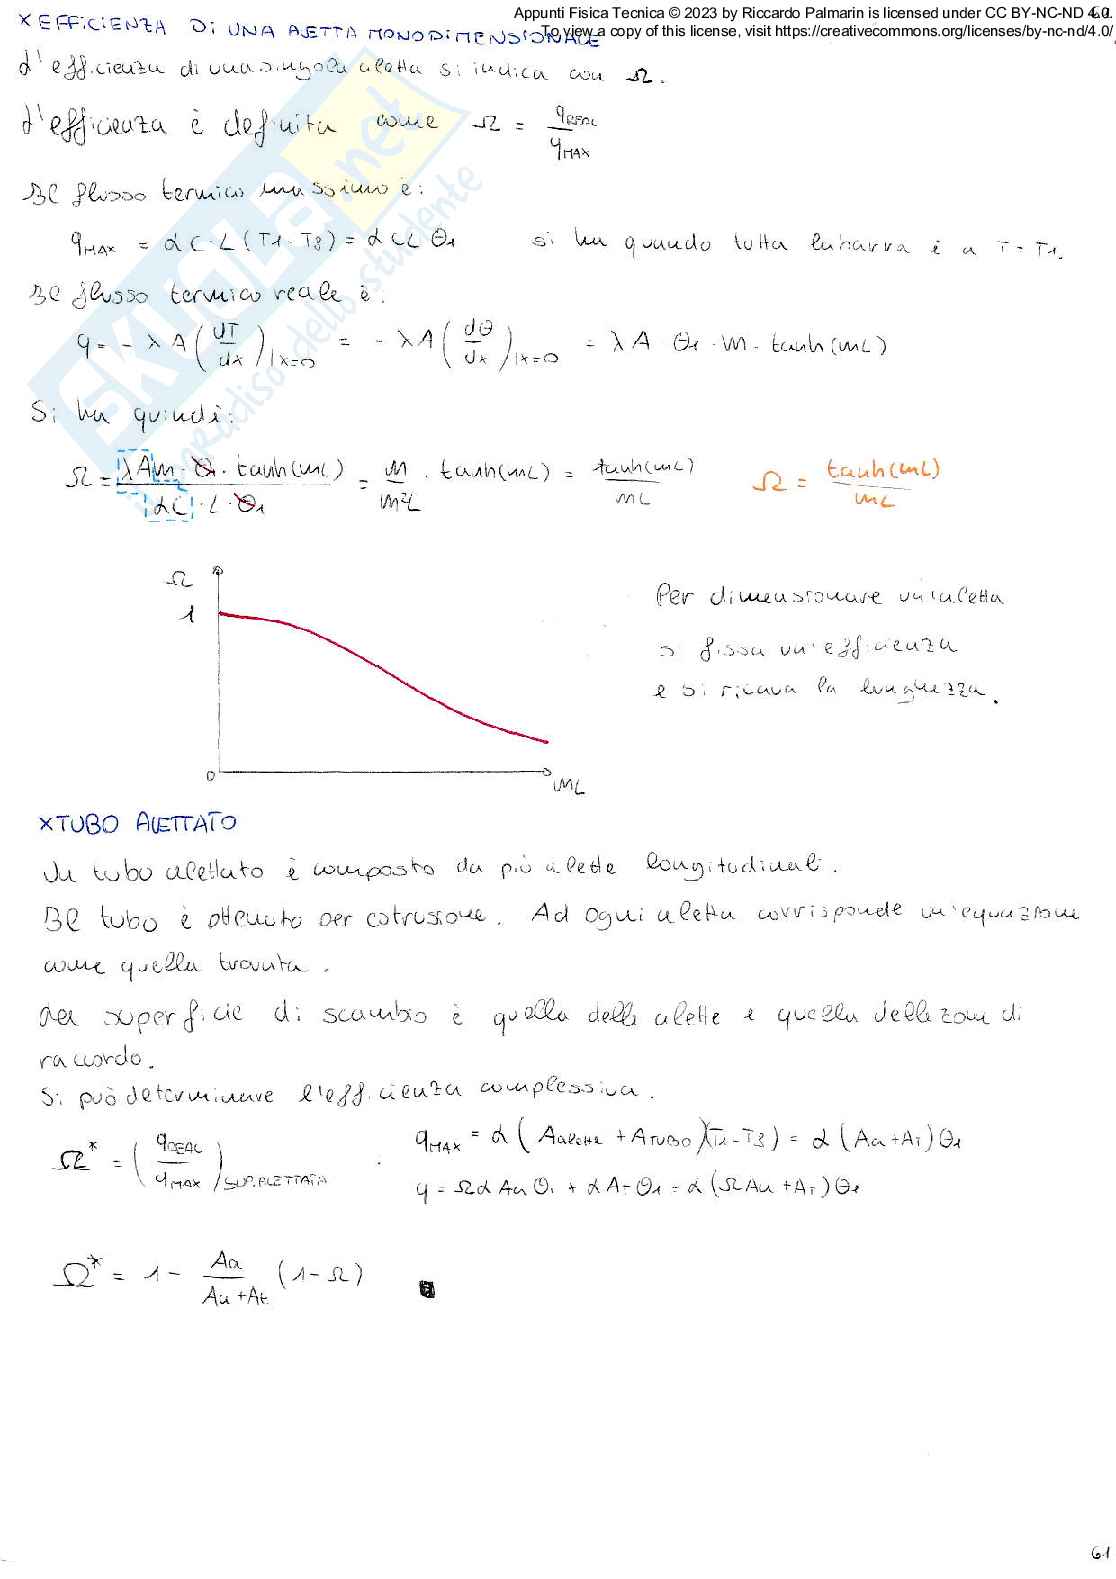 Appunti Fisica Tecnica © 2023 by Riccardo Palmarin is licensed under CC BY-NC-ND 4.0.
To view a copy of this license, visit https://creativecommons.org/licenses/by-nc-nd/4.0/
× EFFICIENZA DI UNA ALETTA MONODIMENSIONALE
L'efficienza di una singola aletta si indica con Ω.
L'efficienza è definita come Ω = qREAL / qMAX
Il flusso termico massimo è:
qMAX = α C · L (T1 - Tf) = α C L θ1 si ha quando tutta la barra è a T = T1.
Il flusso termico reale è:
q = - λ A (dT/dx)|x=0 = - λ A (dθ/dx)|x=0 = λ A · θ1 · m · tanh(mL)
Si ha quindi:
Ω = λAm · θ1 · tanh(mL) / αC · L · θ1 = m / m²L · tanh(mL) = tanh(mL) / mL Ω = tanh(mL) / mL
Ω
1
0
mL
Per dimensionare un'aletta
si fissa un'efficienza
e si ricava la lunghezza.
× TUBO ALETTATO
Un tubo alettato è composto da più alette longitudinali.
Il tubo è ottenuto per estrusione. Ad ogni aletta corrisponde un'equazione
come quella trovata.
La superficie di scambio è quella delle alette e quella delle zone di
raccordo.
Si può determinare l'efficienza complessiva.
Ω* = (qREAL / qMAX) SUP. ALETTATA
qMAX = α (Aalette + ATUBO)(T1 - Tf) = α (Aa + AT) θ1
q = Ω α Aa θ1 + α AT θ1 = α (Ω Aa + AT) θ1
Ω* = 1 - Aa / Aa + At (1 - Ω)
61
SKUOLA.net
paradiso dello studente